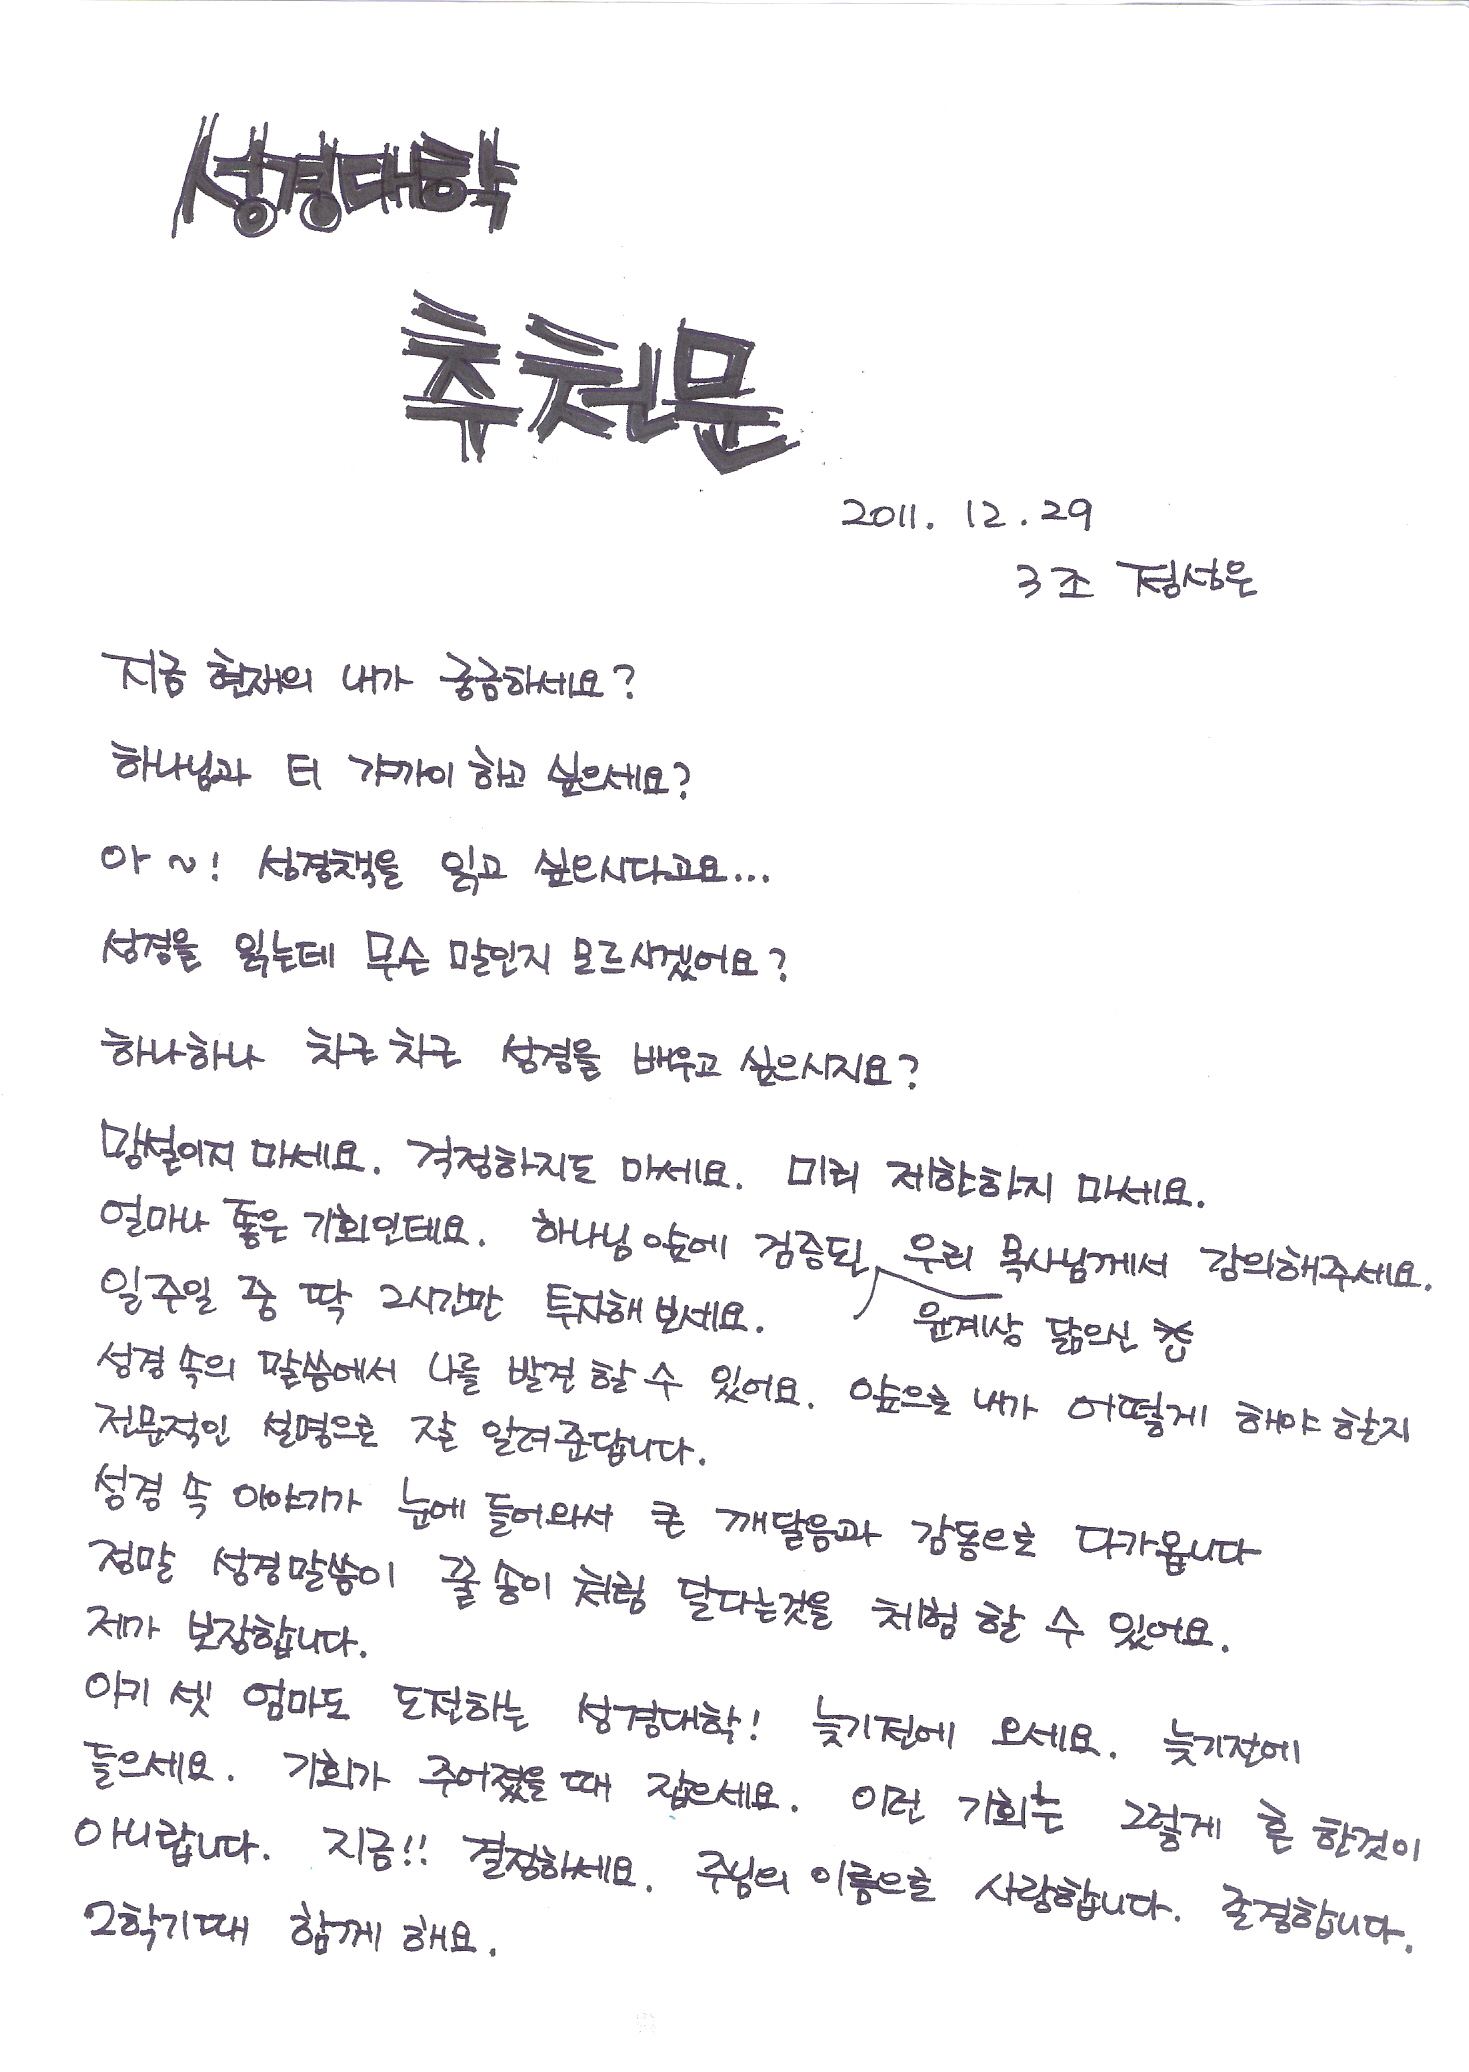 성경대학
추천문
2011. 12. 29
3조 정성은
지금 현재의 내가 궁금하세요?
하나님과 더 가까이 하고 싶으세요?
아~! 성경책을 읽고 싶으시다고요...
성경을 읽는데 무슨 말인지 모르시겠어요?
하나하나 차근차근 성경을 배우고 싶으시지요?
망설이지 마세요. 걱정하지도 마세요. 미리 제한하지 마세요.
얼마나 좋은 기회인데요. 하나님 앞에 검증된 우리 목사님께서 강의해주세요.
윤계상 닮으신
일주일 중 딱 2시간만 투자해 보세요.
성경 속의 말씀에서 나를 발견할 수 있어요. 앞으로 내가 어떻게 해야 할지
전문적인 설명으로 잘 알려준답니다.
성경 속 이야기가 눈에 들어와서 큰 깨달음과 감동으로 다가옵니다
정말 성경말씀이 꿀 송이 처럼 달다는것을 체험 할 수 있어요.
제가 보장합니다.
아기 셋 엄마도 도전하는 성경대학! 늦기전에 오세요. 늦기전에
들으세요. 기회가 주어졌을때 잡으세요. 이런 기회는 그렇게 흔 한것이
아니랍니다. 지금!! 결정하세요. 주님의 이름으로 사랑합니다. 존경합니다.
2학기때 함께 해요.